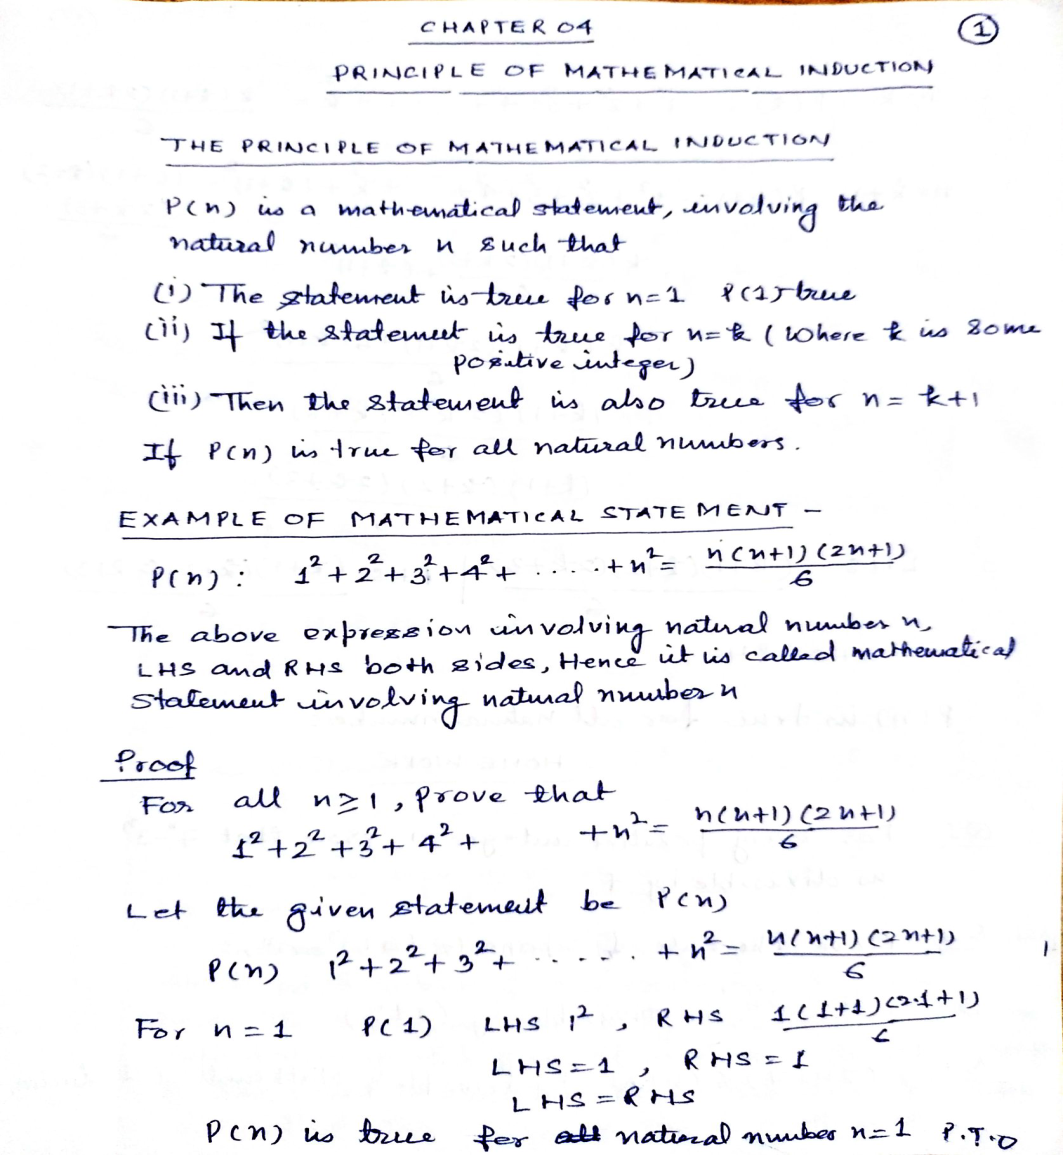 CHAPTER 04
1
PRINCIPLE OF MATHEMATICAL INDUCTION
THE PRINCIPLE OF MATHEMATICAL INDUCTION
P(n) is a mathematical statement, involving the
natural number n such that
(i) The statement is true for n=1 P(1) true
(ii) If the statement is true for n=k (where k is some
positive integer)
(iii) Then the statement is also true for n= k+1
If P(n) is true for all natural numbers.
EXAMPLE OF MATHEMATICAL STATEMENT –
P(n) : 1²+2²+3²+4²+ .....+n²= n(n+1)(2n+1)/6
The above expression involving natural number n,
LHS and RHS both sides, Hence it is called mathematical
statement involving natural number n
Proof
For all n≥1, prove that
1²+2²+3²+4²+ +n²= n(n+1)(2n+1)/6
Let the given statement be P(n)
P(n) 1²+2²+3²+ ...... +n²= n(n+1)(2n+1)/6
For n=1 P(1) LHS 1², RHS 1(1+1)(2.1+1)/6
LHS=1, RHS=1
LHS=RHS
P(n) is true for natural number n=1 P.T.O